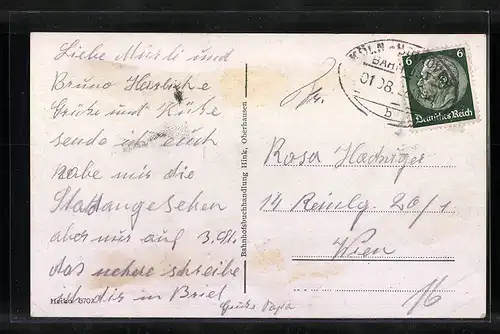 Liebe Mutti und
Bruno Herzliche
Grüße und Küße
sende ich euch
habe mir die
Stadt angesehen
aber nur auf 3. St.
das nehere schreibe
ich dir in Brief
Grüße Papa
Bahnhofsbuchhandlung Hink, Oberhausen
KÖLN
BAHN
01.08.
b
6 6
Deutsches Reich
Fr.
Rosa
14 20/1
Wien